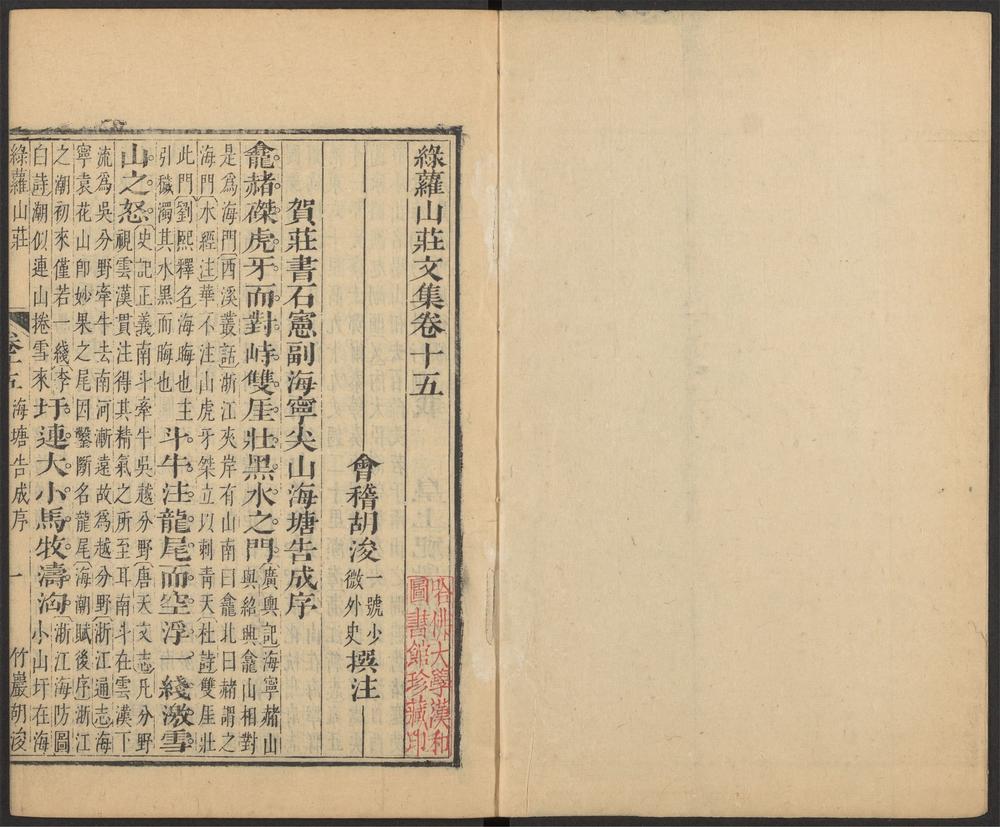 綠蘿山莊文集卷十五
哈佛大學漢和
圖書館珍藏印
會稽胡浚一號少微外史撰注
賀莊書石憲副海寧尖山海塘告成序
龕赭磔虎牙而對峙雙厓壯黑水之門廣輿記海寧赭山與紹興龕山相對
是爲海門西溪叢話浙江夾岸有山南曰龕北曰赭謂之
海門水經注華不注山虎牙桀立以刺青天杜詩雙厓壯
此門劉熙釋名海晦也主引穢濁其水黑而晦也斗牛注龍尾而空浮一綫激雪
山之怒史記正義南斗牽牛吳越分野唐天文志凡分野視雲漢貫注得其精氣之所至耳南斗在雲漢下
流爲吳分野牽牛去南河漸遠故爲越分野浙江通志海
寧袁花山卽妙果之尾因鑿斷名龍尾海潮賦後序浙江
之潮初來僅若一綫李白詩潮似連山捲雪來圩連大小馬牧濤洶浙江海防圖小山圩在海
綠蘿山莊 卷十五 海塘告成序 一 竹巖胡浚